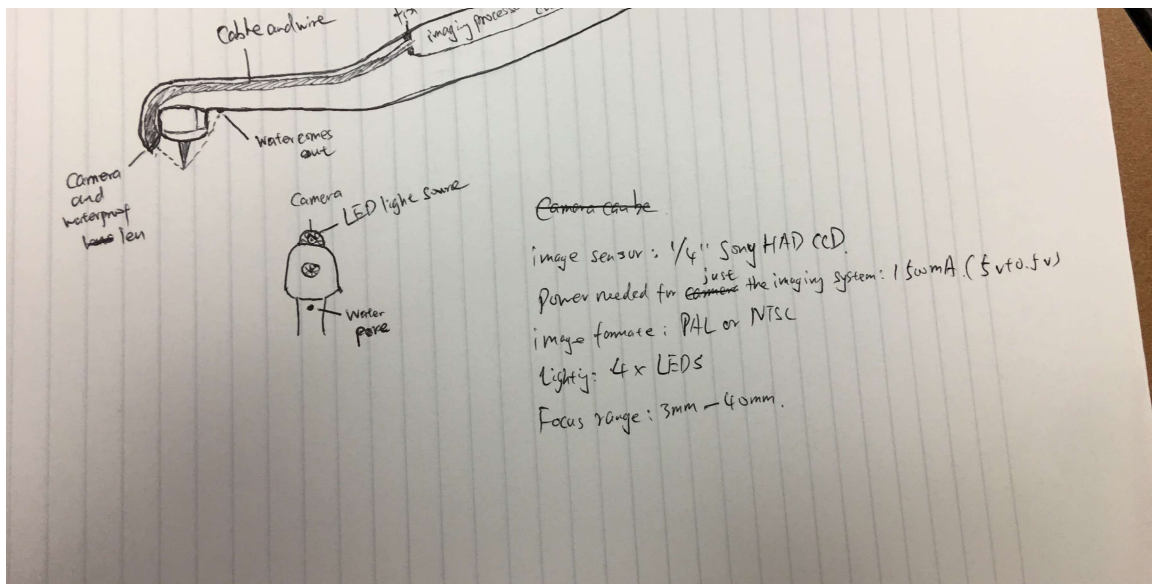 Cable and wire
fix
imaging processo
Water comes
out
Camera
and
waterproof
lens len
Camera
LED light source
Water
pore
Camera can be
image sensor: 1/4" Sony HAD CCD.
just
Power needed for camera the imaging system: 1500mA. (5v±0.5v)
image formate: PAL or NTSC
Lightig: 4x LEDs
Focus range: 3mm - 40mm.